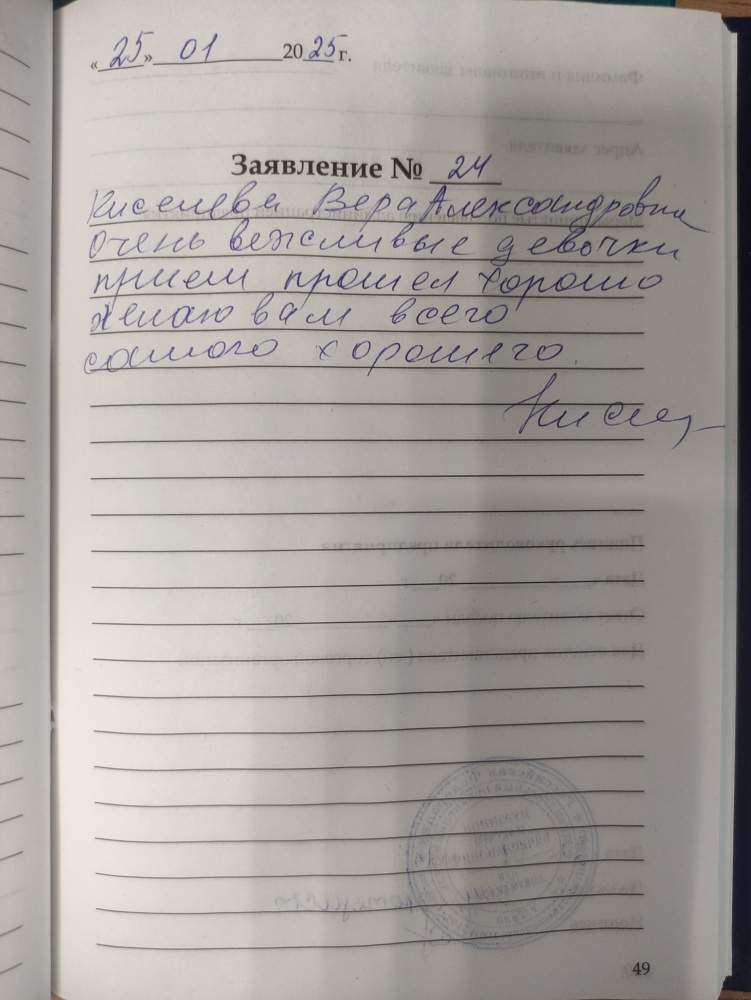 «25» 01 2025 г.
Заявление № 24
Киселева Вера Александровна
очень вежливые девочки
прием прошел хорошо
желаю вам всего
самого хорошего.
49